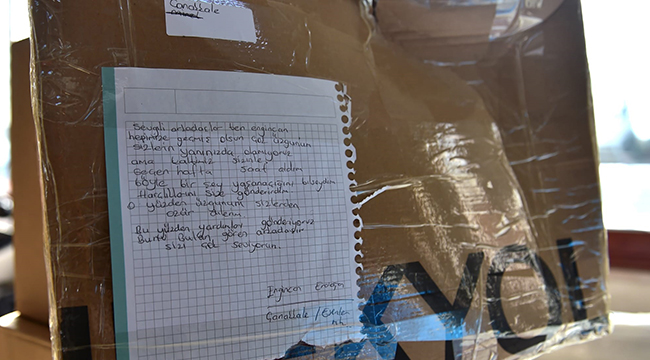 Çanakkale
Sevgili arkadaşlar ben engincan
hepinize geçmiş olsun çok üzgünüm
sizlerin yanınızda olamıyoruz
ama kalbimiz sizinle
geçen hafta saat aldım
böyle bir şey yaşanacağını bilseydim
Harçlıklarımı size gönderirdim
o yüzden üzgünüm sizlerden
özür dilerim
Bu yüzden yardımlar gönderiyoruz
Bunu bulan gören arkadaşlar
sizi çok seviyorum.
Engincan
Çanakkale /